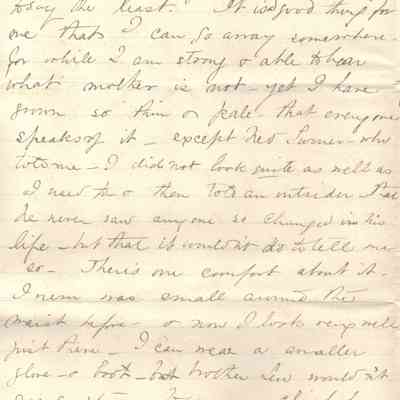 to say the least." It is a good thing for
me that I can go away somewhere
for while I am strong & able to hear
what mother is not - yet I have
grown so thin & pale - that everyone
speaks of it - except Ned - who
told me - I did not look quite as well as
I used to & then told an outsider that
he never saw anyone so changed in his
life - but that it wouldn't do to tell me
so - There's one comfort about it -
I never was small around the
waist before - & now I look very well
just there - I can wear a smaller
glove - & boot - but brother wouldn't